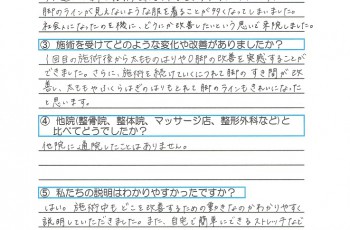 脚のラインが見えないような服を着ることが多くなってしまいました。
社会人になったのを機に、どうにか改善したいという思いで来院しました。
③ 施術を受けてどのような変化や改善がありましたか？
1回目の施術後から太もものはりやO脚の改善を実感することが
できました。さらに、施術を続けていくにつれて脚の すき間が改
善し、太ももやふくらはぎのはりもとれて脚のラインもきれいになった
と思います。
④ 他院(整骨院、整体院、マッサージ店、整形外科など)と
比べてどうでしたか？
他院に通院したことはありません。
⑤ 私たちの説明はわかりやすかったですか？
はい。施術中もどこを改善するための動きなのかわかりやすく
説明していただきました。また、自宅で簡単にできるストレッチなど